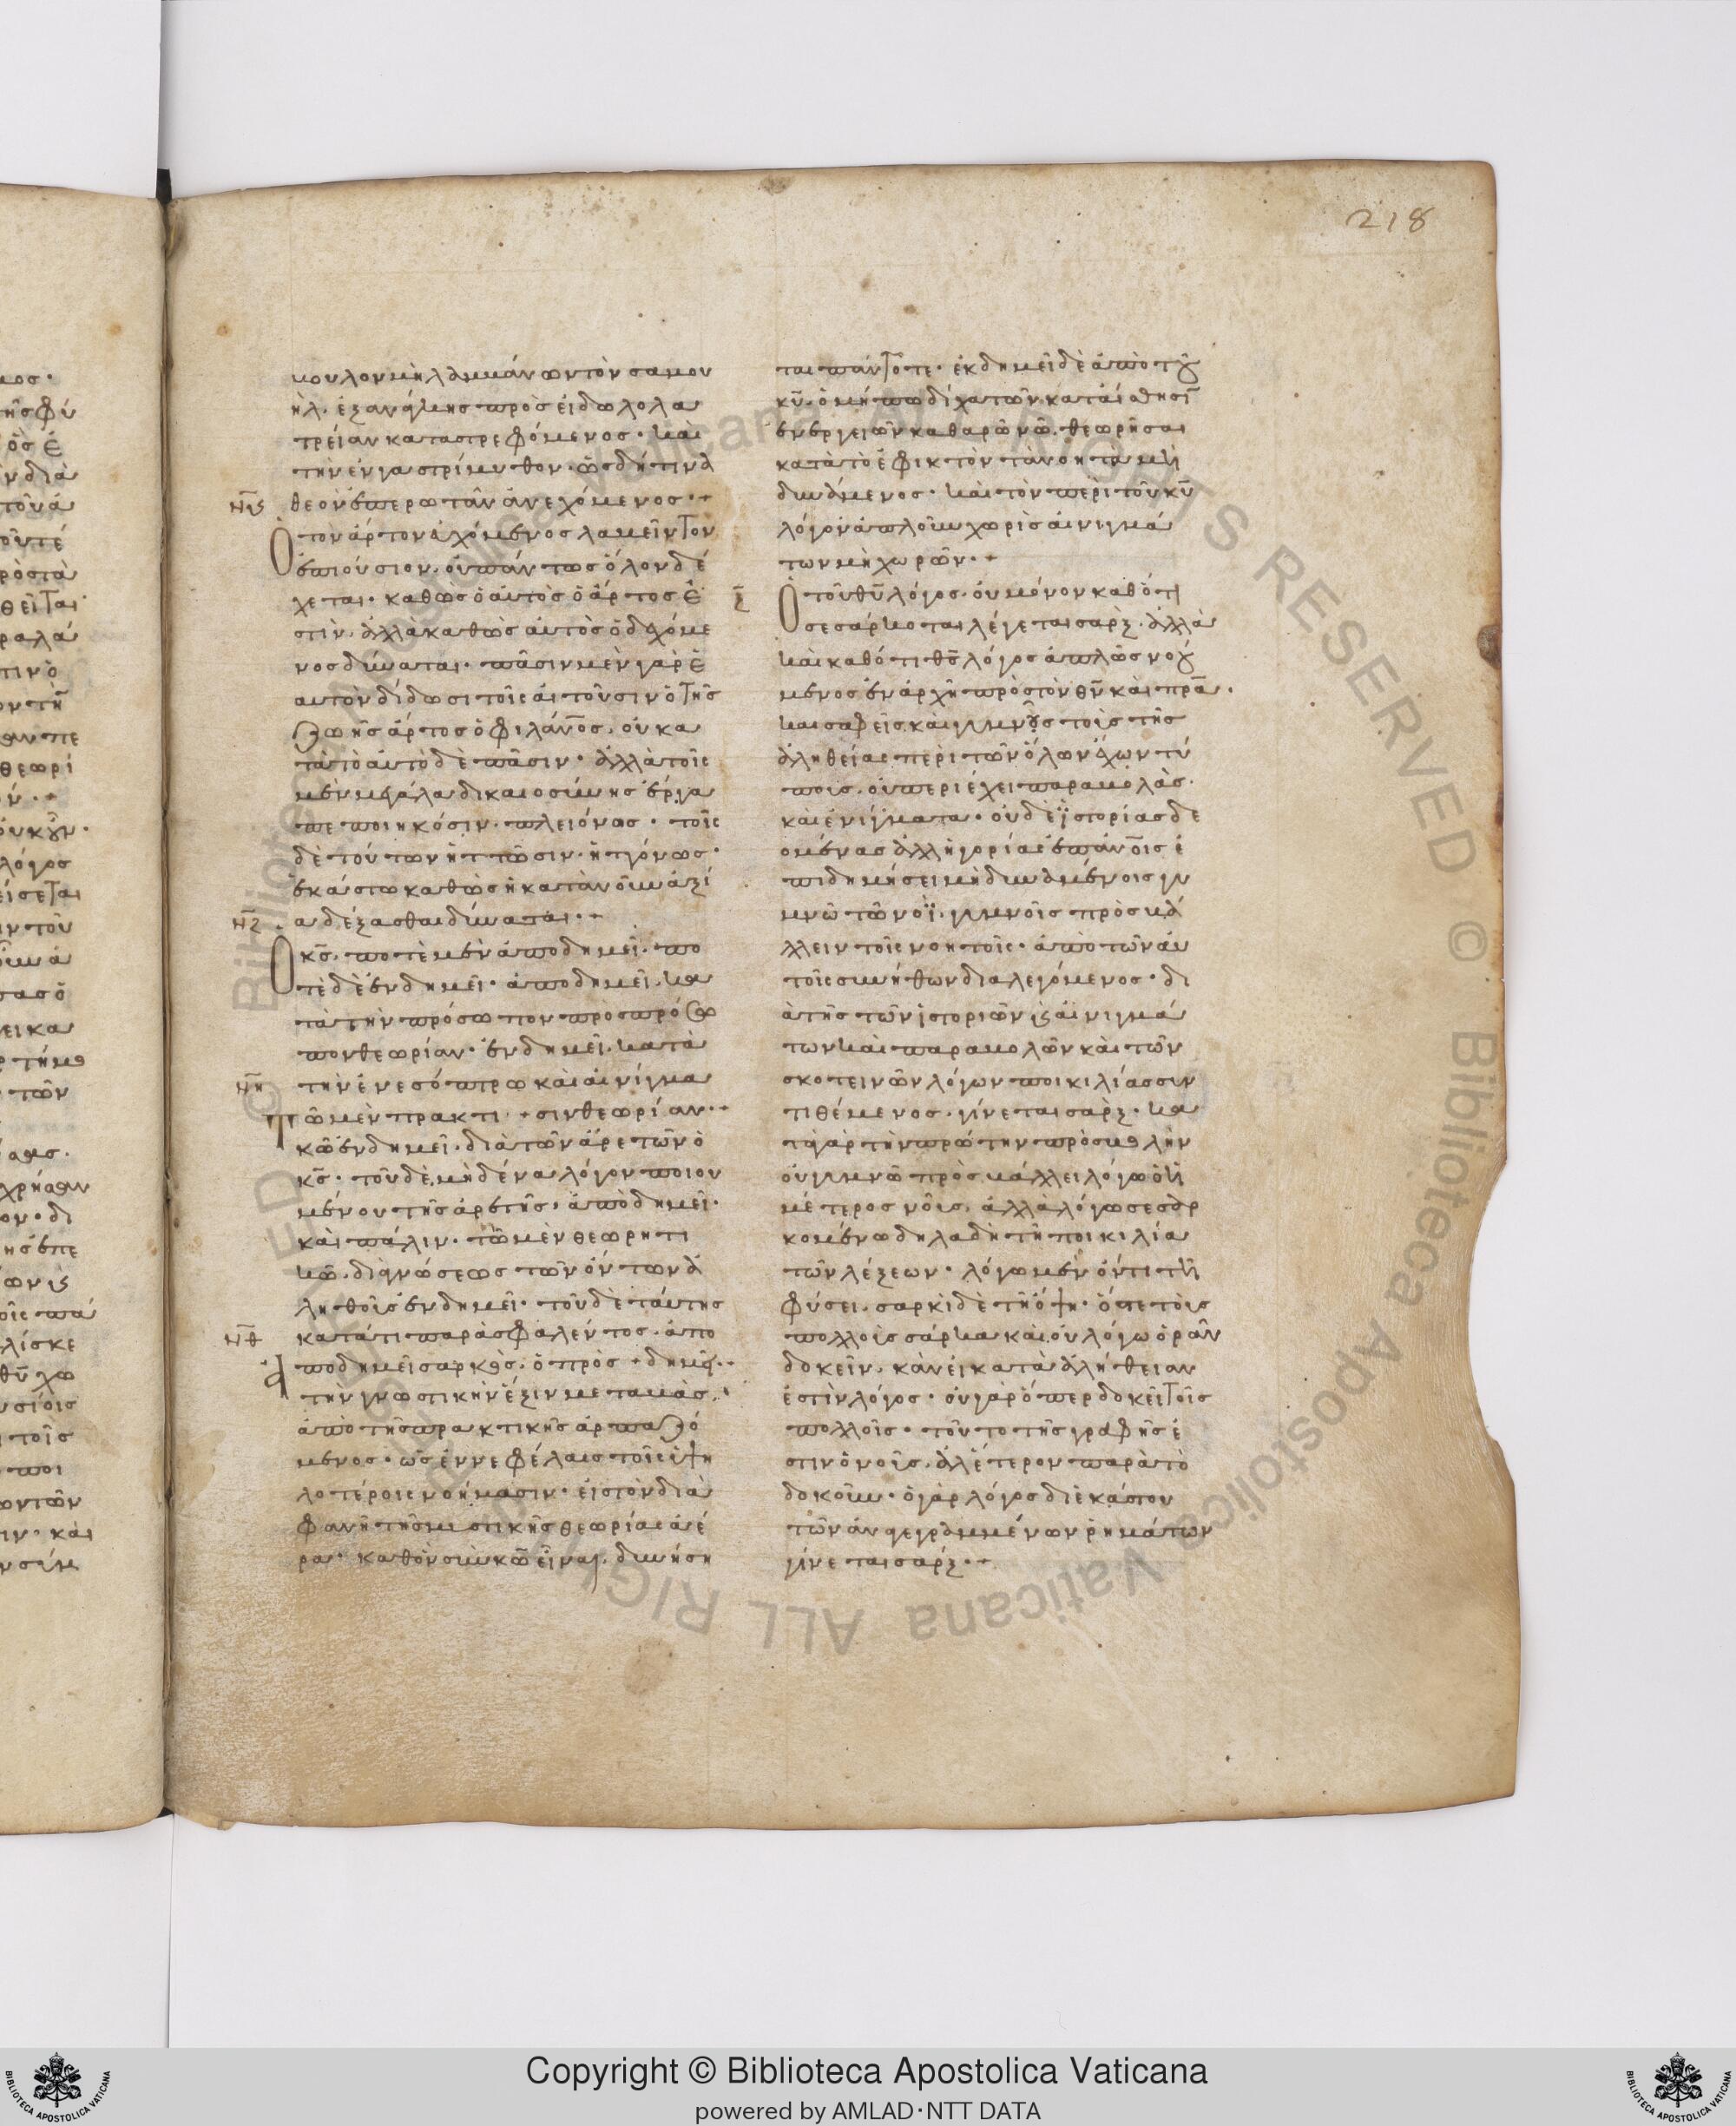 218
βουλον μὴ λαμβάνων τὸν σαμου
ήλ. ἐξανάγκης πρὸς εἰδωλολα
τρείαν καταστρεφόμενος· καὶ
τὴν ἐνγαστρίμυθον. ὡς δή τινα
θεὸν ἐπερωτᾶν ἀνεχόμενος·+
ν̅ϛ̅
Ὁ τὸν ἄρτον εὐχόμενος λαβεῖν τὸν
ἐπιούσιον. οὐ πάντως ὅλον δέ
χεται. καθὼς ὁ αὐτὸς ὁ ἄρτος ἐ
στίν. ἀλλὰ καθὼς αὐτὸς ὁ δεχόμε
νος δύναται. πᾶσιν μὲν γὰρ ἑ
αυτὸν δίδωσι τοῖς αἰτοῦσιν ὁ τῆς
ζωῆς ἄρτος ὁ φιλάν̅ο̅ς. οὐ κα
τὰ τὸ αὐτὸ δὲ πᾶσιν· ἀλλὰ τοῖς
μὲν μεγάλα δικαιοσύνης ἔργα
πεποιηκόσιν. πλειόνως· τοῖς
δὲ τούτων ἥττωσιν. ἡττόνως·
ἑκάστω καθὼς ἡ κατὰ νοῦν ἀξί
α δέξασθαι δύναται·+
ν̅ζ̅
Ὁ κ̅ς̅. ποτὲ μὲν ἀποδημεῖ. πο
τὲ δὲ ἐνδημεῖ· ἀποδημεῖ. κα
τὰ τὴν πρόσωπον πρὸς πρόσω
πον θεωρίαν· ἐνδημεῖ. κατὰ
τὴν ἐν ἐσόπτρω καὶ αἰνίγμα
σιν θεωρίαν·+
ν̅η̅
Τῶ μὲν πρακτι
κῶ ἐνδημεῖ. διὰ τῶν ἀρετῶν ὁ
κ̅ς̅. τοῦ δὲ, μηδένα λόγον ποιου
μένου τῆς ἀρετῆς, ἀποδημεῖ.
καὶ πάλιν. τῶ μὲν θεωρητι
κῶ. διὰ γνώσεως τῶν ὄντων ἀ
ληθοῖς ἐνδημεῖ· τοῦ δὲ ταύτης
κατά τι παρασφαλέντος. ἀπο
δημεῖ·+
ν̅θ̅
Ἀποδημεῖ σαρκὸς. ὁ πρὸς
τὴν γνωστικὴν ἕξιν μεταβὰς
ἀπὸ τῆς πρακτικῆς ἁρπαζό
μενος· ὡς ἐν νεφέλαις τοῖς ὑψη
λοτέροις νοήμασιν· εἰς τὸν δια
φανῆ τῆς μυστικῆς θεωρίας ἀέ
ρα· καθ' ὃν σὺν κ̅ω̅ εἶναι. δυνήσε
ται πάντοτε· ἐκδημεῖ δὲ ἀπὸ τοῦ
κ̅υ̅. ὁ μήπω δίχα τῶν κατ' αἴσθησι̅
ἐνεργειῶν καθαρῶ νῶ. θεωρῆσαι
κατὰ τὸ ἐφικτὸν τὰ νοητὰ μὴ
δυνάμενος· καὶ τὸν περὶ τοῦ κ̅υ̅
λόγον ἁπλοῦν χωρὶς αἰνιγμά
των μὴ χωρῶν·+
ξ̅
Ὁ τοῦ θ̅υ̅ λόγος. οὐ μόνον καθ' ὅτι
σεσάρκωται λέγεται σαρξ. ἀλλὰ
καὶ καθό τι θ̅ς̅ λόγος ἁπλῶς νοού
μενος ἐν ἀρχῆ πρὸς τὸν θ̅ν̅ καὶ π̅ρ̅α̅.
καὶ σαφεῖς καὶ γυμνοὺς τοὺς τῆς
ἀληθείας περὶ τῶν ὅλων ἔχων τύ
πους. οὐ περιέχει παραβολὰς.
καὶ ἐνίγματα· οὐδὲ ἱστορίας δε
ομένας ἀλληγορίας ἐπὰν ο̅ι̅ς ἐ
πιδημήσει μὴ δυναμένοις γυ
μνῶ τῶ νοῒ. γυμνοῖς προσβά
λλειν τοῖς νοητοῖς· ἀπὸ τῶν αὐ
τοῖς συνήθων διαλεγόμενος· δι
ὰ τῆς τῶν ἱστοριῶν κ(αὶ) αἰνιγμά
των καὶ παραβολῶν καὶ τῶν
σκοτεινῶν λόγων ποικιλίας συν
τιθέμενος. γίνεται σαρξ· κα
τὰ γὰρ τὴν πρώτην προσβολὴν
οὐ γυμνῶ προσβάλλει λόγω ὁ ἡ
μέτερος νοῦς. ἀλλὰ λόγω σεσαρ
κομένω δηλαδὴ τῆ ποικιλία
τῶν λέξεων· λόγω μὲν ὄντι τῆ
φύσει. σαρκὶ δὲ τῆ ὄψη· ὅτε τοὺς
πολλοὺς σάρκα καὶ οὐ λόγω ὁρᾶν
δοκεῖν, κὰν εἰ κατὰ ἀλήθειαν
ἐστὶν λόγος· οὐ γὰρ ὅπερ δοκεῖ τοῖς
πολλοῖς· τοῦτο τῆς γραφῆς ἐ
στιν ὁ νοῦς. ἀλ' ἕτερον παρὰ τὸ
δοκοῦν· ὁ γὰρ λόγος δι' ἑκάστου
τῶν ἀναγεγραμμένων ῥημάτων
γίνεται σαρξ·+
Copyright © Biblioteca Apostolica Vaticana
powered by AMLAD·NTT DATA